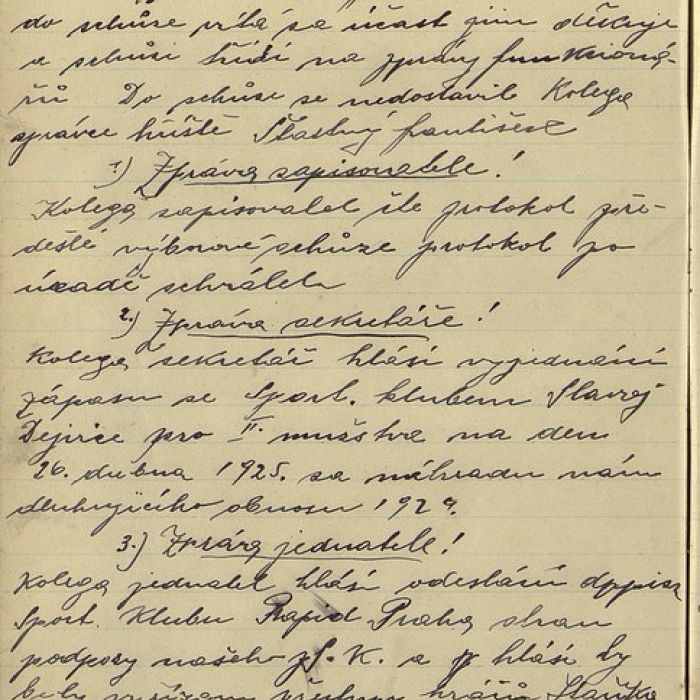 do schůze vítá za účast jim děkuje
a schůzi řídí na zprávy funkcioná-
řů Do schůze se nedostavil Kolega
správce hřiště Šťastný František
1.) Zpráva zapisovatele!
Kolega zapisovatel čte protokol pře-
dešlé výborové schůze protokol po
úvadě schválen
2.) Zpráva sekretáře!
Kolega sekretář hlásí vyjednání
zápasu se Sport. klubem Slavoj
Dejvice pro II. mužstva na den
26. dubna 1925. za náhradu nám
dluhujícího obnosu 1924.
3.) Zpráva jednatele!
Kolega jednatel hlásí odeslání dopisu
Sport. Klubu Rapid Praha stran
podpory našeho S. K. a hlásí by
byly všechny hráčů